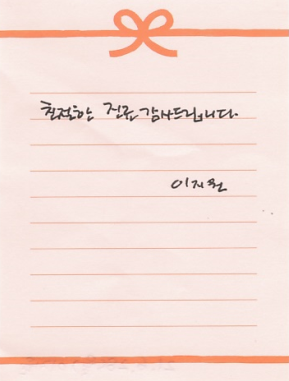 친절한 진료 감사드립니다.
이지원